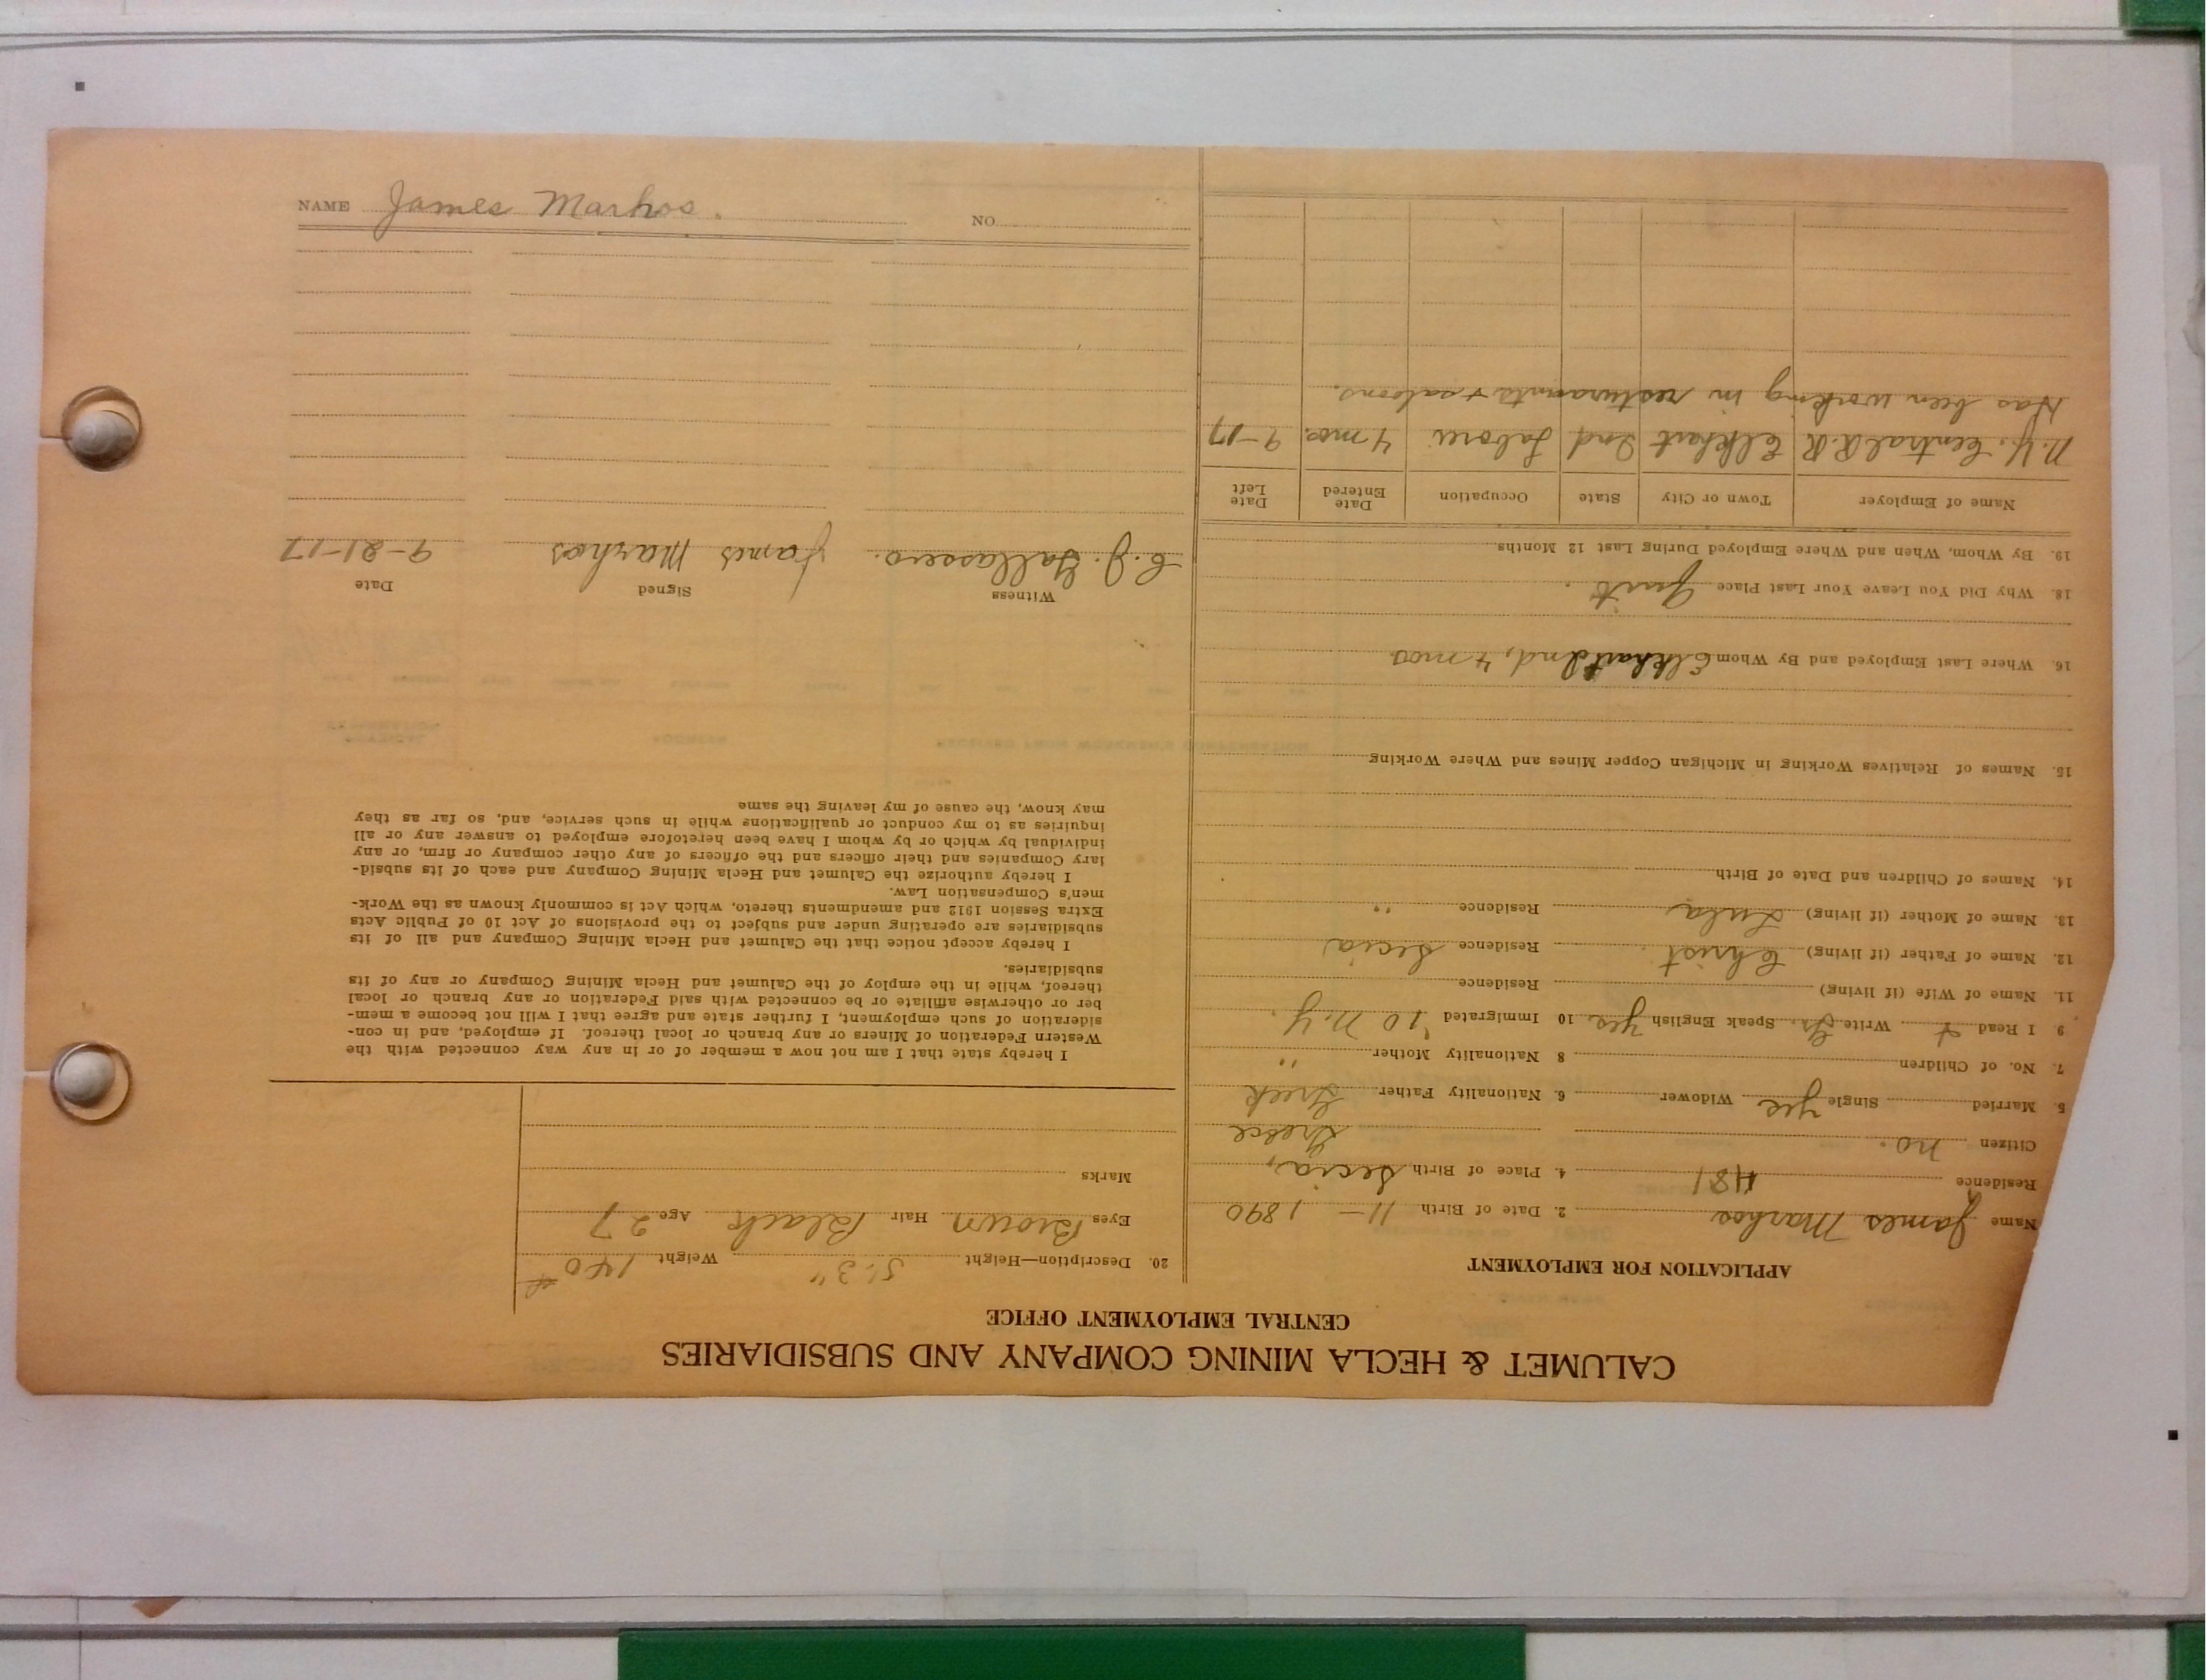 CALUMET & HECLA MINING COMPANY AND SUBSIDIARIES
CENTRAL EMPLOYMENT OFFICE
APPLICATION FOR EMPLOYMENT
Name James Markos 2. Date of Birth 11 - 1890
Residence 481 4. Place of Birth Secia,
Citizen no. Greece
5. Married Single Yes Widower 6. Nationality Father Greek
7. No. of Children 8 Nationality Mother "
9 I Read + Write Gr. Speak English Yes 10 Immigrated '10 N.Y.
11. Name of Wife (if living) Residence
12. Name of Father (if living) Christ Residence Secia
13. Name of Mother (if living) Lula Residence "
14. Names of Children and Date of Birth
15. Names of Relatives Working in Michigan Copper Mines and Where Working
16. Where Last Employed and By Whom Elkhart Ind, 4 mos
18. Why Did You Leave Your Last Place Quit.
19. By Whom, When and Where Employed During Last 12 Months
Name of Employer Town or City State Occupation Date Entered Date Left
N.Y. Central R.R Elkhart Ind Labore 4 mos. 9-17
Has been working in resturants + saloons.
20. Description—Height 5'.3" Weight 140#
Eyes Brown Hair Black Age 27
Marks
I hereby state that I am not now a member of or in any way connected with the
Western Federation of Miners or any branch or local thereof. If employed, and in con-
sideration of such employment, I further state and agree that I will not become a mem-
ber or otherwise affiliate or be connected with said Federation or any branch or local
thereof, while in the employ of the Calumet and Hecla Mining Company or any of its
subsidiaries.
I hereby accept notice that the Calumet and Hecla Mining Company and all of its
subsidiaries are operating under and subject to the provisions of Act 10 of Public Acts
Extra Session 1912 and amendments thereto, which Act is commonly known as the Work-
men's Compensation Law.
I hereby authorize the Calumet and Hecla Mining Company and each of its subsid-
iary Companies and their officers and the officers of any other company or firm, or any
individual by which or by whom I have been heretofore employed to answer any or all
inquiries as to my conduct or qualifications while in such service, and, so far as they
may know, the cause of my leaving the same
Witness Signed Date
C. J. Gallassero. James Markos 9-21-17
NAME James Markos. NO.